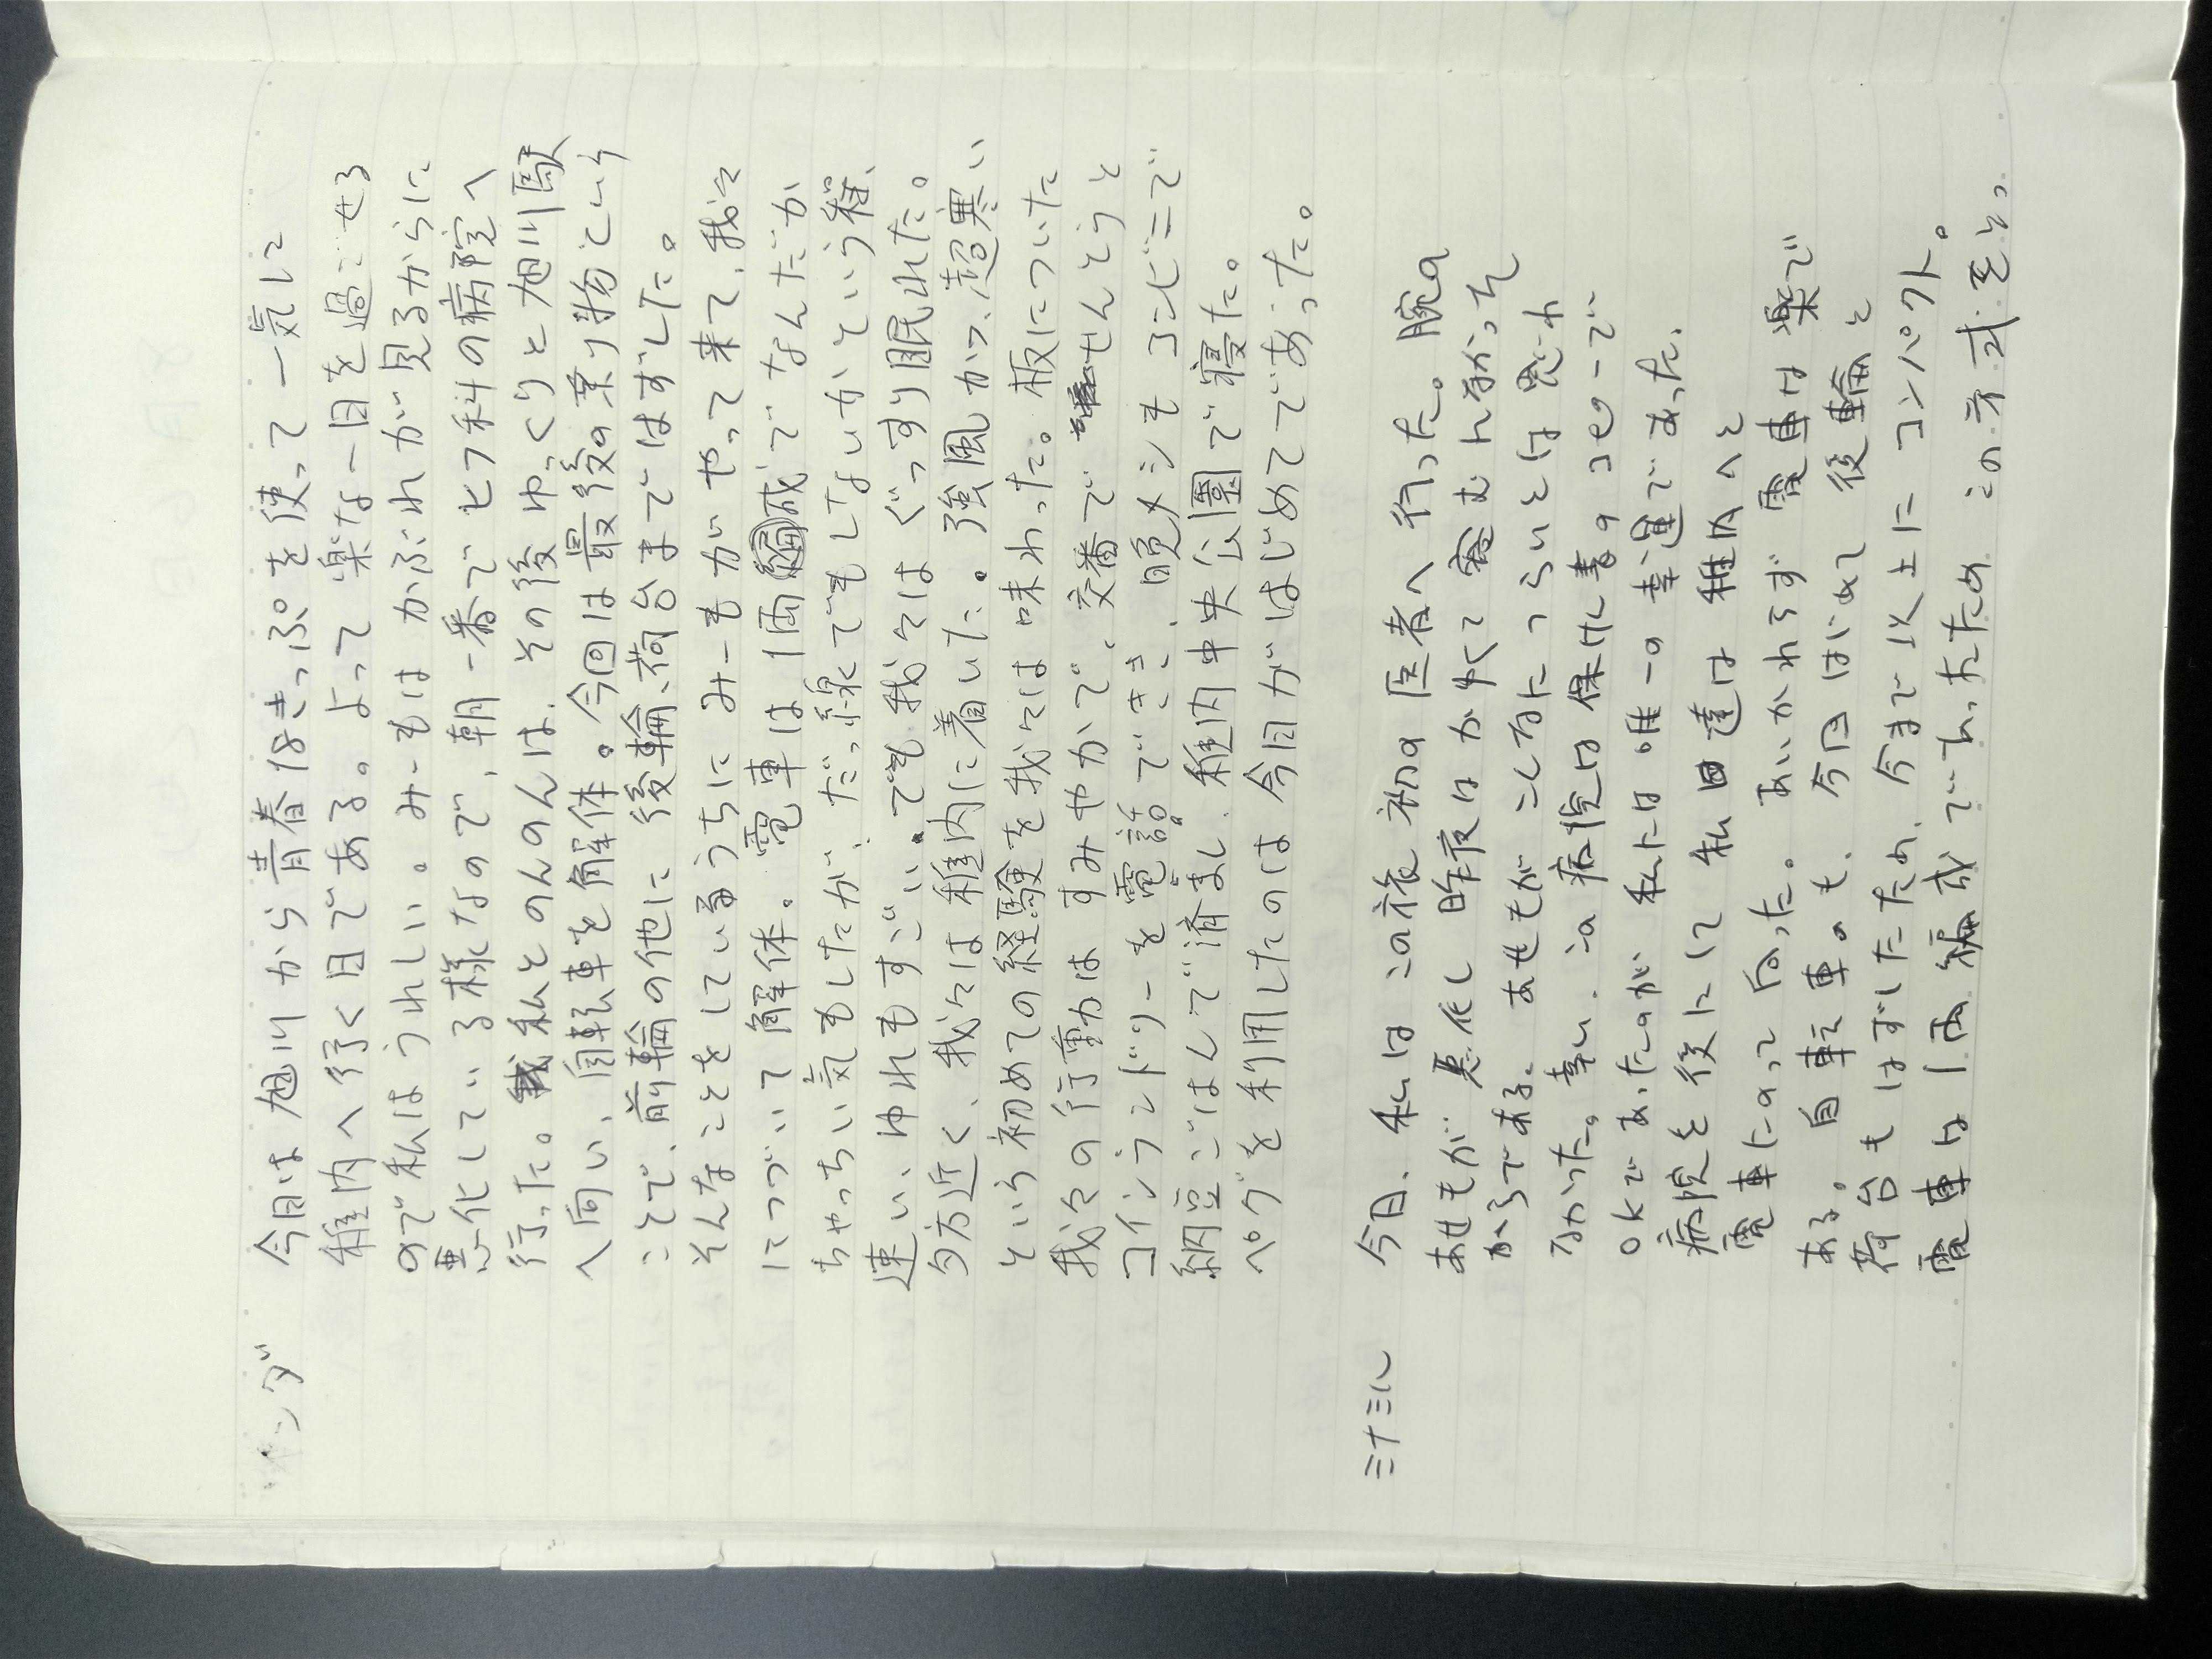 ンダ 今日は旭川から青春18きっぷを使って一気に
稚内へ行く日である。よって楽な一日を過ごせる
ので私はうれしい。みーもはかぶれが見るからに
悪化している様なので、朝一番でヒフ科の病院へ
行った。私とのんのんは、その後ゆっくりと旭川駅
へ向い、自転車を解体。今回は最後の乗り物という
ことで、前輪の他に後輪、荷台まではずした。
そんなことをしているうちにみーもがやって来て、我々
につづいて解体。電車は1両編成でなんだか
ちゃっちい気もしたが、だっ線でもしないかという程、
速い、ゆれもすごい。でも我々はぐっすり眠れた。
夕方近く、我々は稚内に着いた。強風かつ、超寒い
という初めての経験を我々は味わった。板についた
我々の行動はすみやかで、交番でせんとうと
コインランドリーを電話できき、晩メシもコンビニで
納豆ごはんで済まし、稚内中央公園で寝た。
ペグを利用したのは今日がはじめてであった。
ミナミル 今日、私はこの旅初の医者へ行った。腕の
あせもが悪化し昨夜はかゆくて寝むれなかった
からである。あせもがこんなにつらいとは思わ
なかった。幸い、この病院は保険書のコピーで
OKであったのが私には唯一の幸運であった。
病院を後にして私達は稚内へと
電車にのって向った。あいかわらず電車は楽で
ある。自転車のも、今回はじめて後輪と
荷台もはずしたため、今まで以上にコンパクト。
電車は1両編成であったためこの方式をとっ